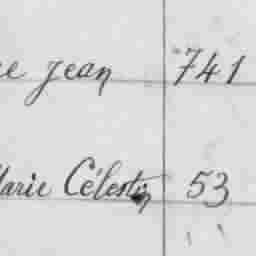 jean 741
Marie Célestin 53